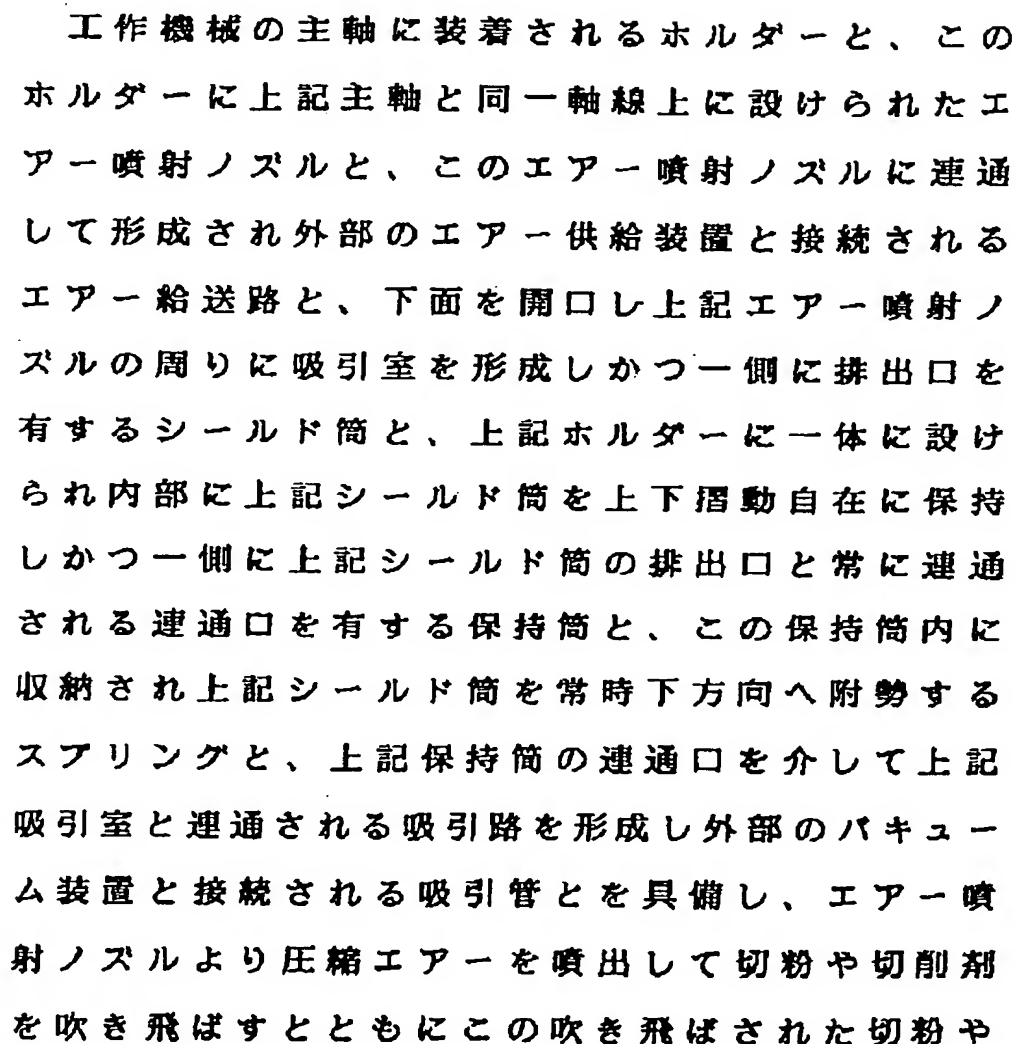 工作機械の主軸に装着されるホルダーと、この
ホルダーに上記主軸と同一軸線上に設けられたエ
アー噴射ノズルと、このエアー噴射ノズルに連通
して形成され外部のエアー供給装置と接続される
エアー給送路と、下面を開口し上記エアー噴射ノ
ズルの周りに吸引室を形成しかつ一側に排出口を
有するシールド筒と、上記ホルダーに一体に設け
られ内部に上記シールド筒を上下摺動自在に保持
しかつ一側に上記シールド筒の排出口と常に連通
される連通口を有する保持筒と、この保持筒内に
収納され上記シールド筒を常時下方向へ附勢する
スプリングと、上記保持筒の連通口を介して上記
吸引室と連通される吸引路を形成し外部のバキュー
ム装置と接続される吸引管とを具備し、エアー噴
射ノズルより圧縮エアーを噴出して切粉や切削剤
を吹き飛ばすとともにこの吹き飛ばされた切粉や